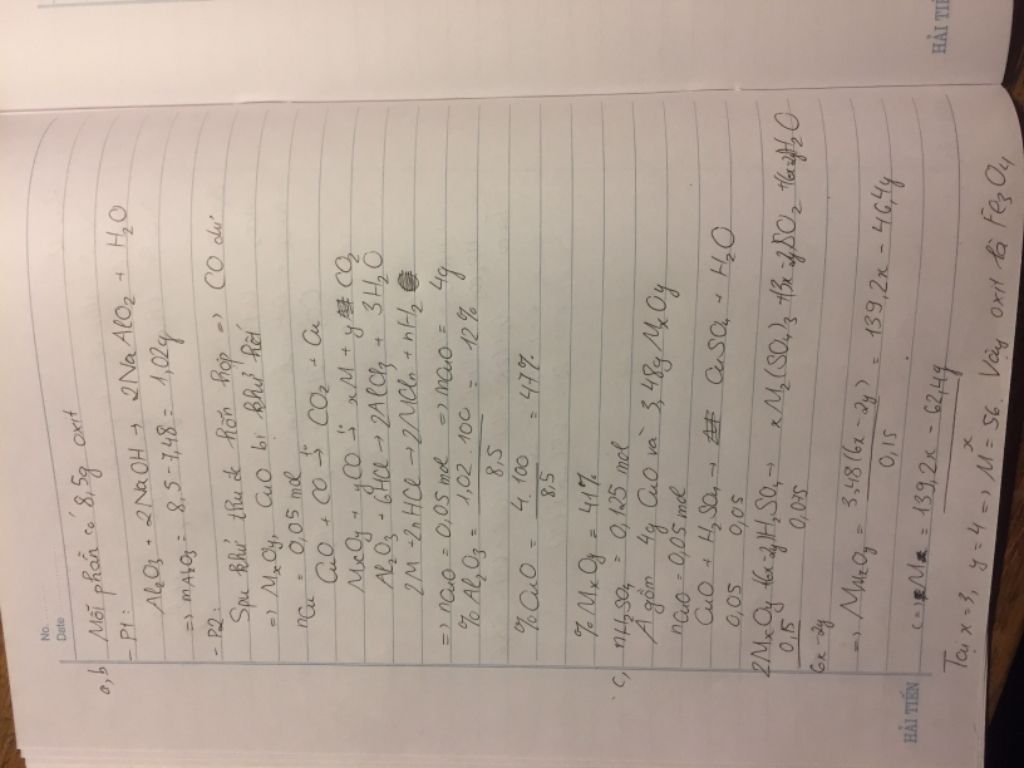 No.
Date
a, b Mỗi phần có 8,5g oxit
- P1:
Al2O3 + 2NaOH → 2NaAlO2 + H2O
=> mAl2O3 = 8,5 - 7,48 = 1,02g
- P2:
Spu khí thu đc hỗn hợp => CO dư
=> MxOy, CuO bị khử hết
nCu = 0,05 mol
CuO + CO →to CO2 + Cu
MxOy + yCO →to xM + yCO2
Al2O3 + 6HCl → 2AlCl3 + 3H2O
2M + 2nHCl → 2MCln + nH2
=> nCuO = 0,05 mol => mCuO = 4g
% Al2O3 = 1,02 . 100 / 8,5 = 12%
% CuO = 4 . 100 / 8,5 = 47%
% MxOy = 41%
c, nH2SO4 = 0,125 mol
A gồm 4g CuO và 3,48g MxOy
nCuO = 0,05 mol
CuO + H2SO4 → CuSO4 + H2O
0,05 0,05
2MxOy + (6x-2y)H2SO4 → xM2(SO4)3 + (3x-2y)SO2 + (6x-2y)H2O
0,15 / 6x-2y 0,05
=> MMxOy = 3,48(6x - 2y) / 0,15 = 139,2x - 46,4y
<=> M = 139,2x - 62,4y / x
Tại x = 3, y = 4 => M = 56. Vậy oxit là Fe3O4
HẢI TIẾN
HẢI TIẾN